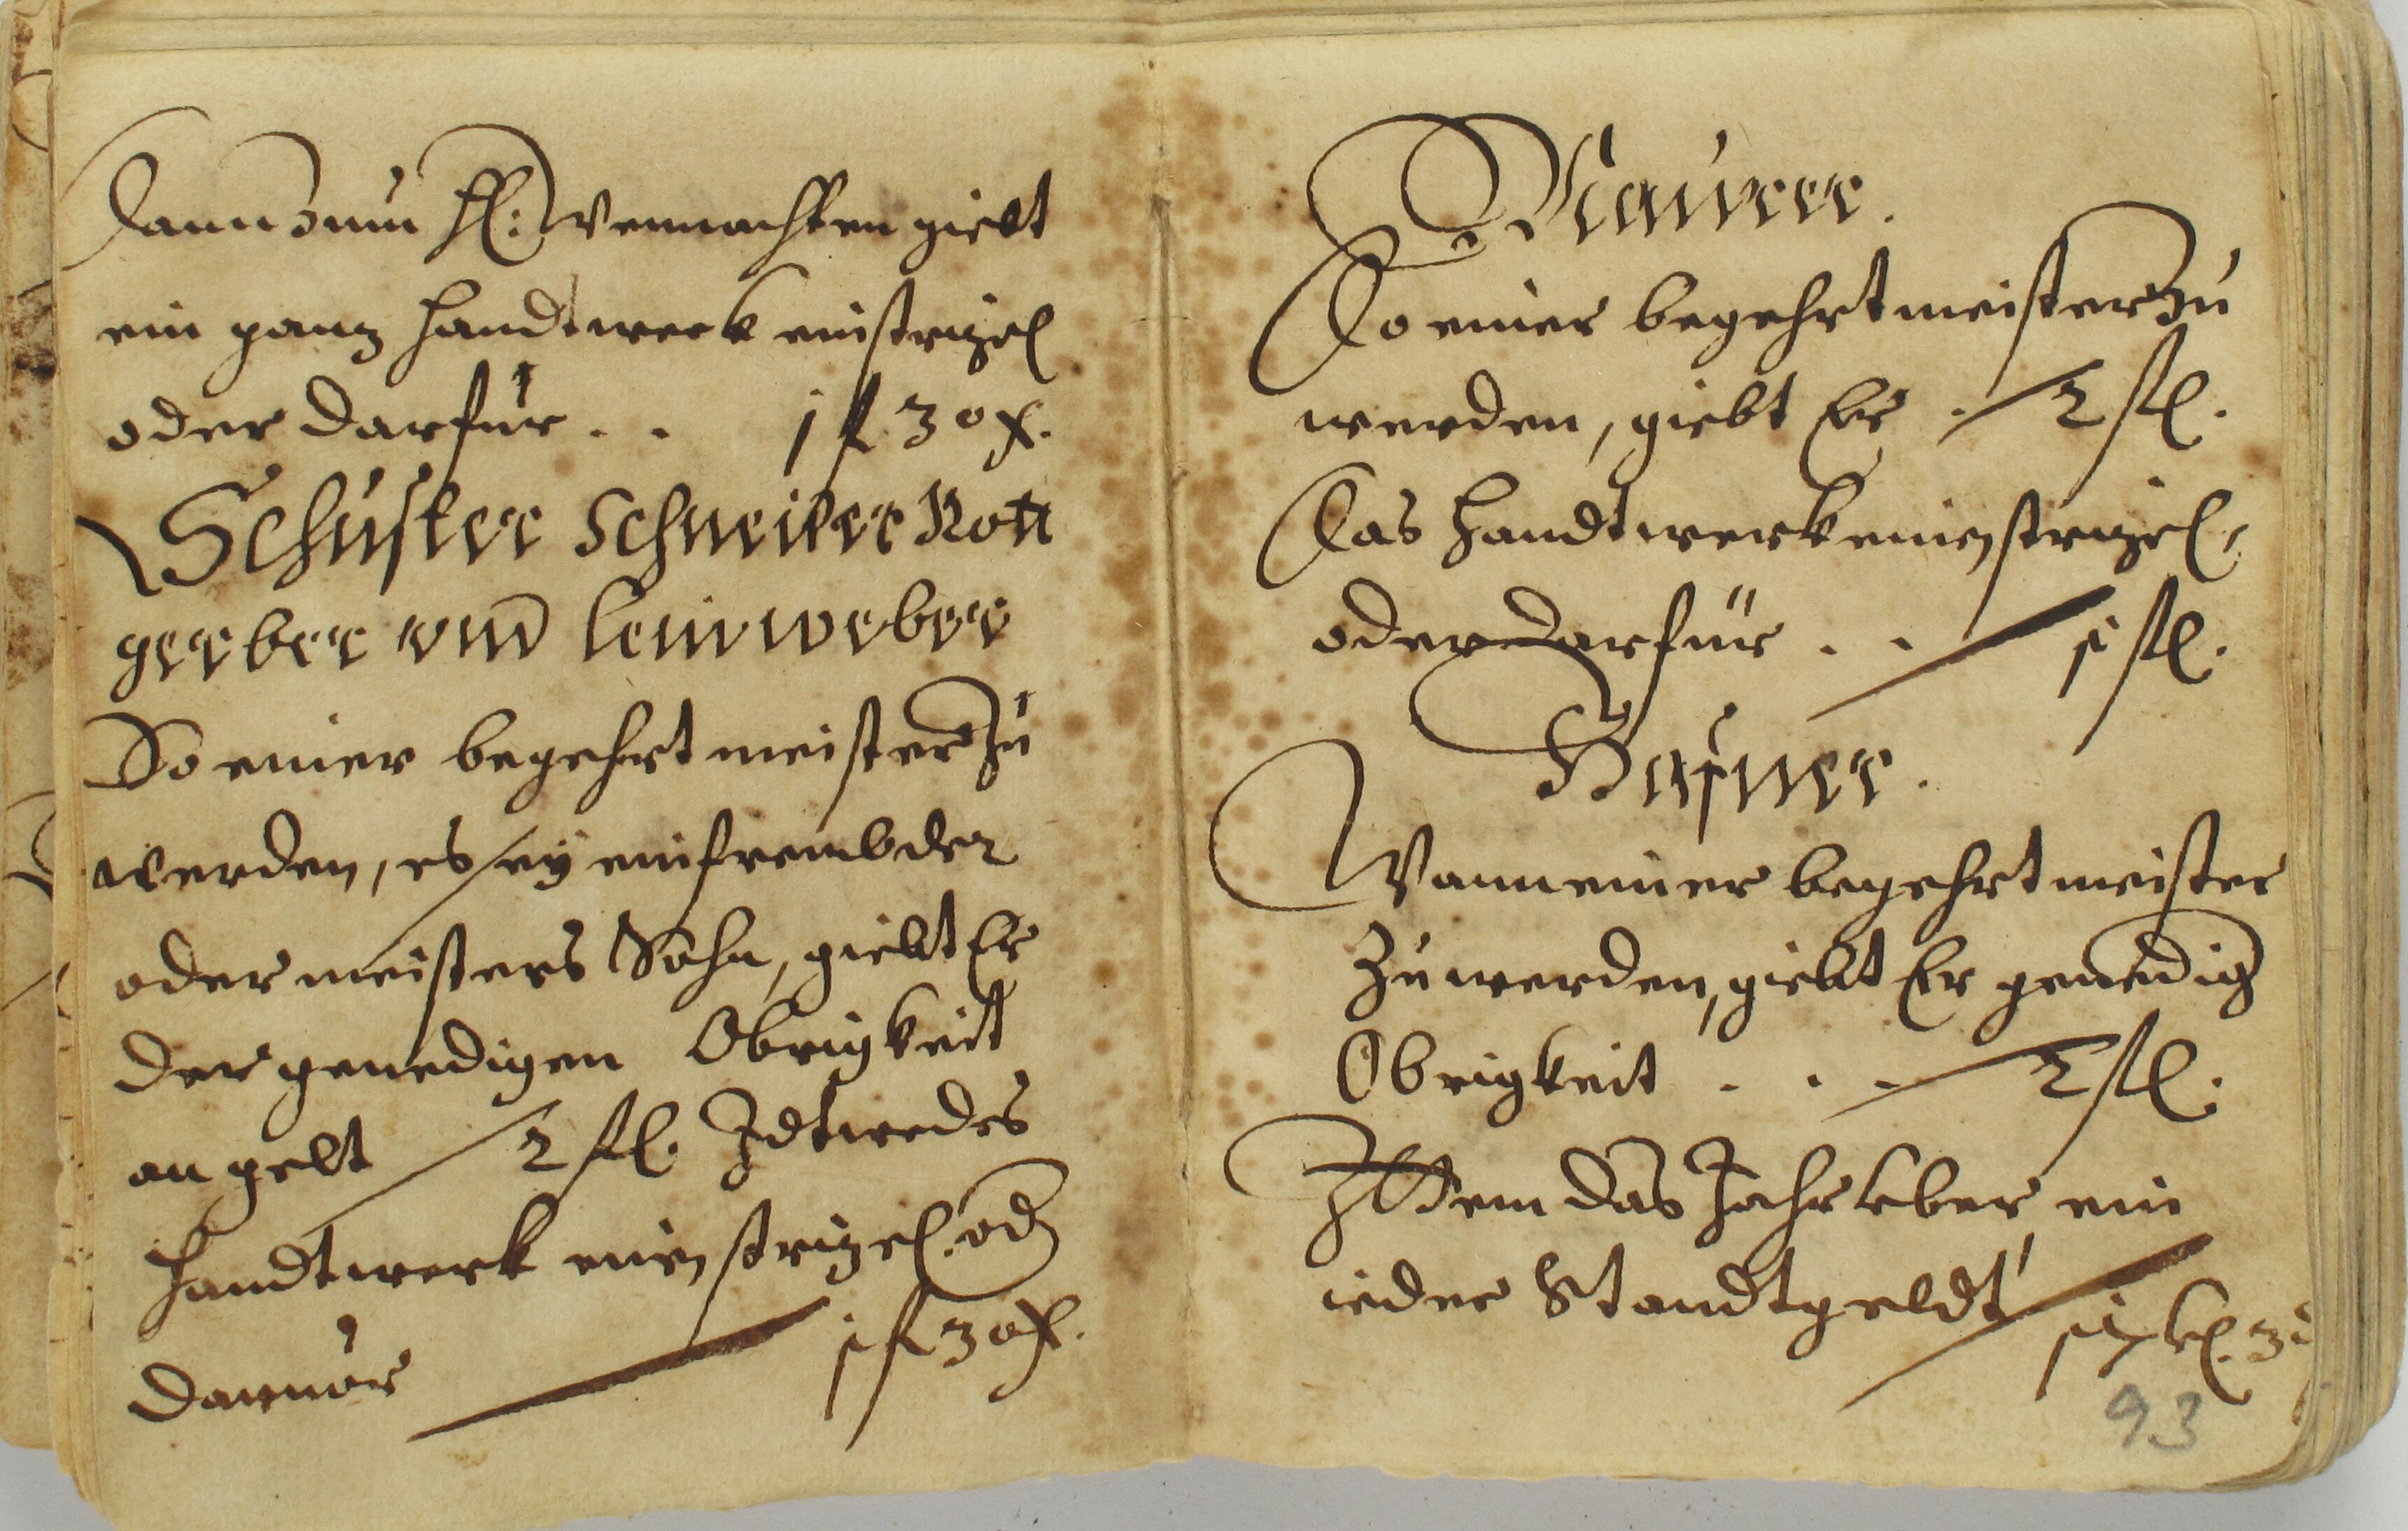 Dann zum hl: Weinnachten giebt
ein ganz Handtwerk ein strizel
oder darfür . . 1 f 30 x.
Schuster Schneiter Rott
gerber vnd Leinweber
So einer begehrt meister zu
werden, es sey ein frembder
oder meisters Sohn, giebt Er
der genedigen Obrigkeit
an gelt 2 fl. Idtwedes
Handtwerk einen strizel. od
daruor 1 f 30 x.
Maurer.
So einer begehrt meister zu
werden, giebt Er . 2 fl.
Das Handtwerk einen strizel,
oder darfür . . 1 fl.
Hafner.
Wann einer begehrt meister
zu werden, giebt Er genedig
Obrigkeit . . . 2 fl.
Ittem das Jahr vber ein
ieder Standtgeldt
93